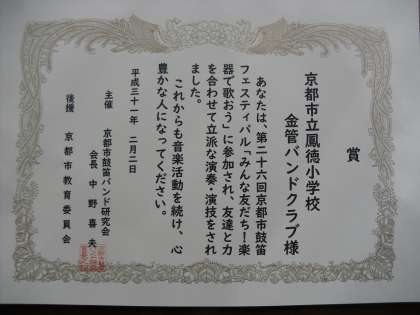 賞
京都市立鳳徳小学校
金管バンドクラブ様
あなたは、第二十六回京都市鼓笛
フェスティバル「みんな友だち!楽
器で歌おう」に参加され、友達と力
を合わせて立派な演奏・演技をされ
ました。
これからも音楽活動を続け、心
豊かな人になってください。
平成三十一年 二月二日
主催 京都市鼓笛バンド研究会
会長 中野喜夫
後援 京都市教育委員会